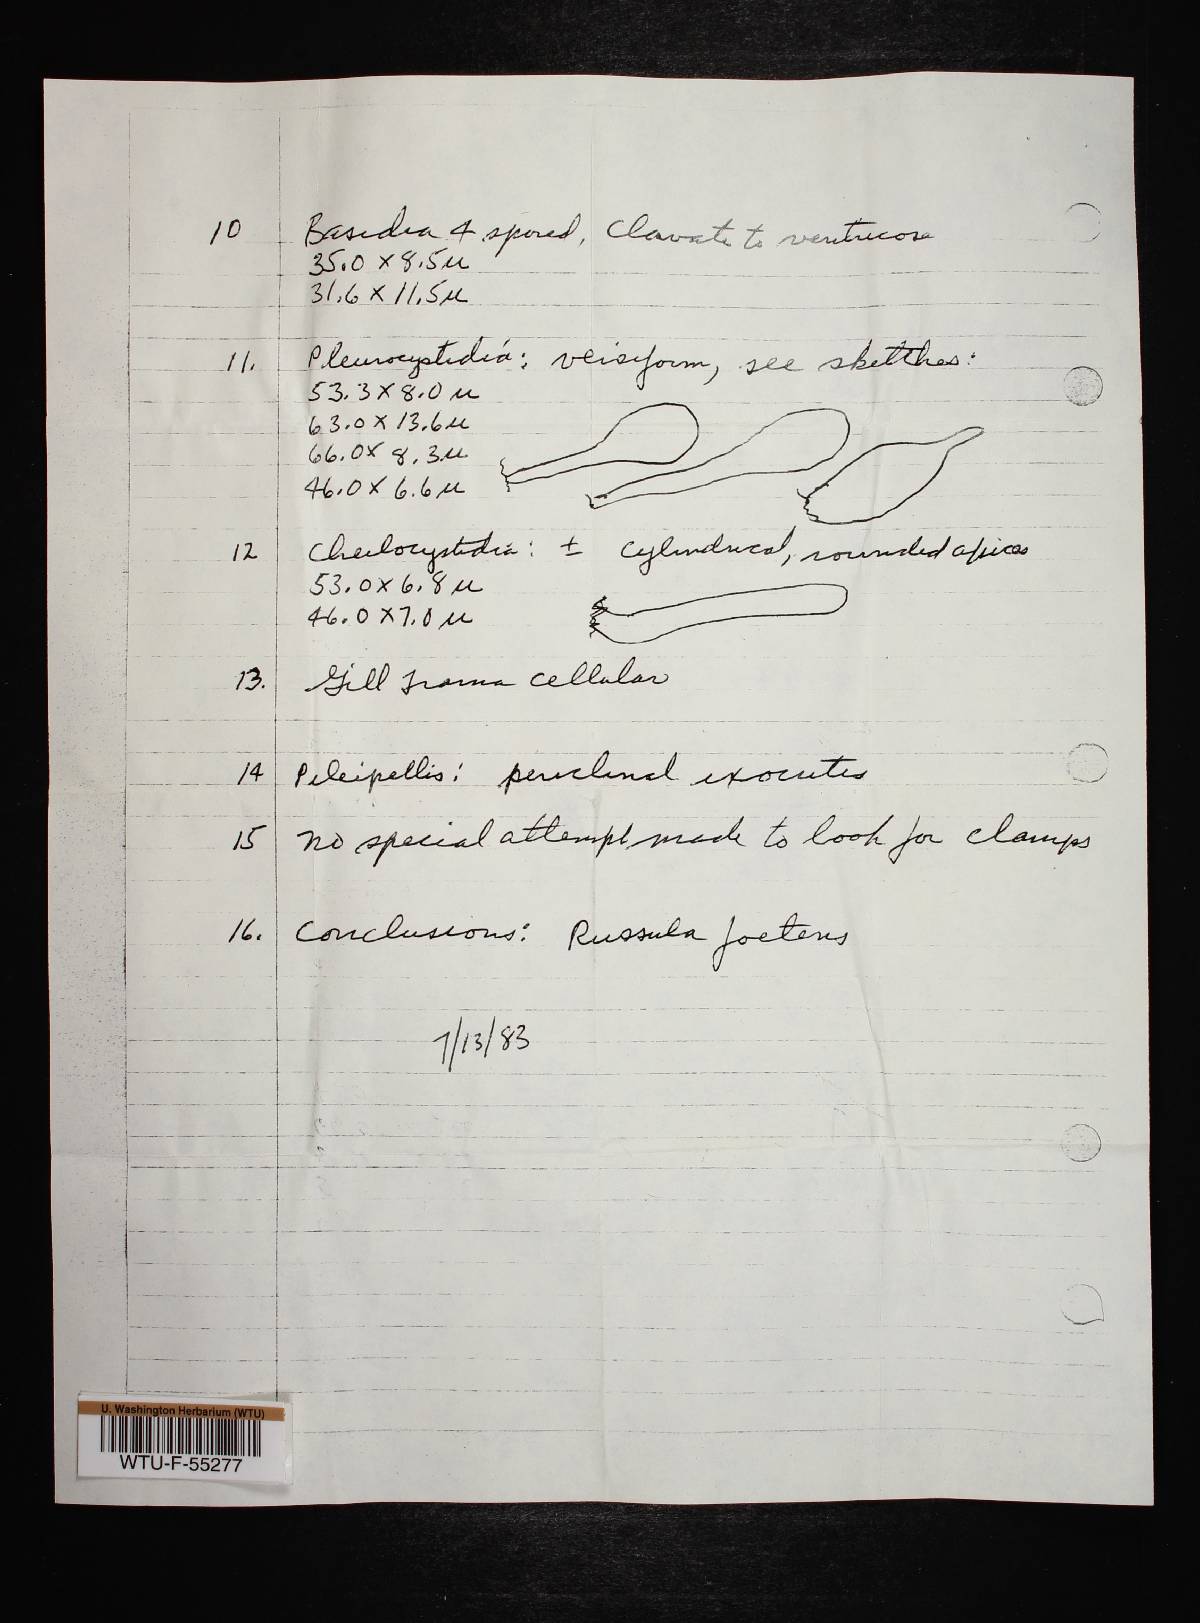 10 Basidia 4 spored, Clavate to ventricose
35.0 x 8.5µ
31.6 x 11.5µ
11. Pleurocystidia: versiform, see sketches:
53.3 x 8.0 µ
63.0 x 13.6µ
66.0 x 8.3µ
46.0 x 6.6µ
12 Cheilocystidia: ± cylindrical, rounded apices
53.0 x 6.8 µ
46.0 x 7.0 µ
13. Gill trama cellular
14 Pileipellis: periclinal
15 no special attempt made to look for clamps
16. Conclusions: Russula foetens
7/13/83
U. Washington Herbarium (WTU)
WTU-F-55277